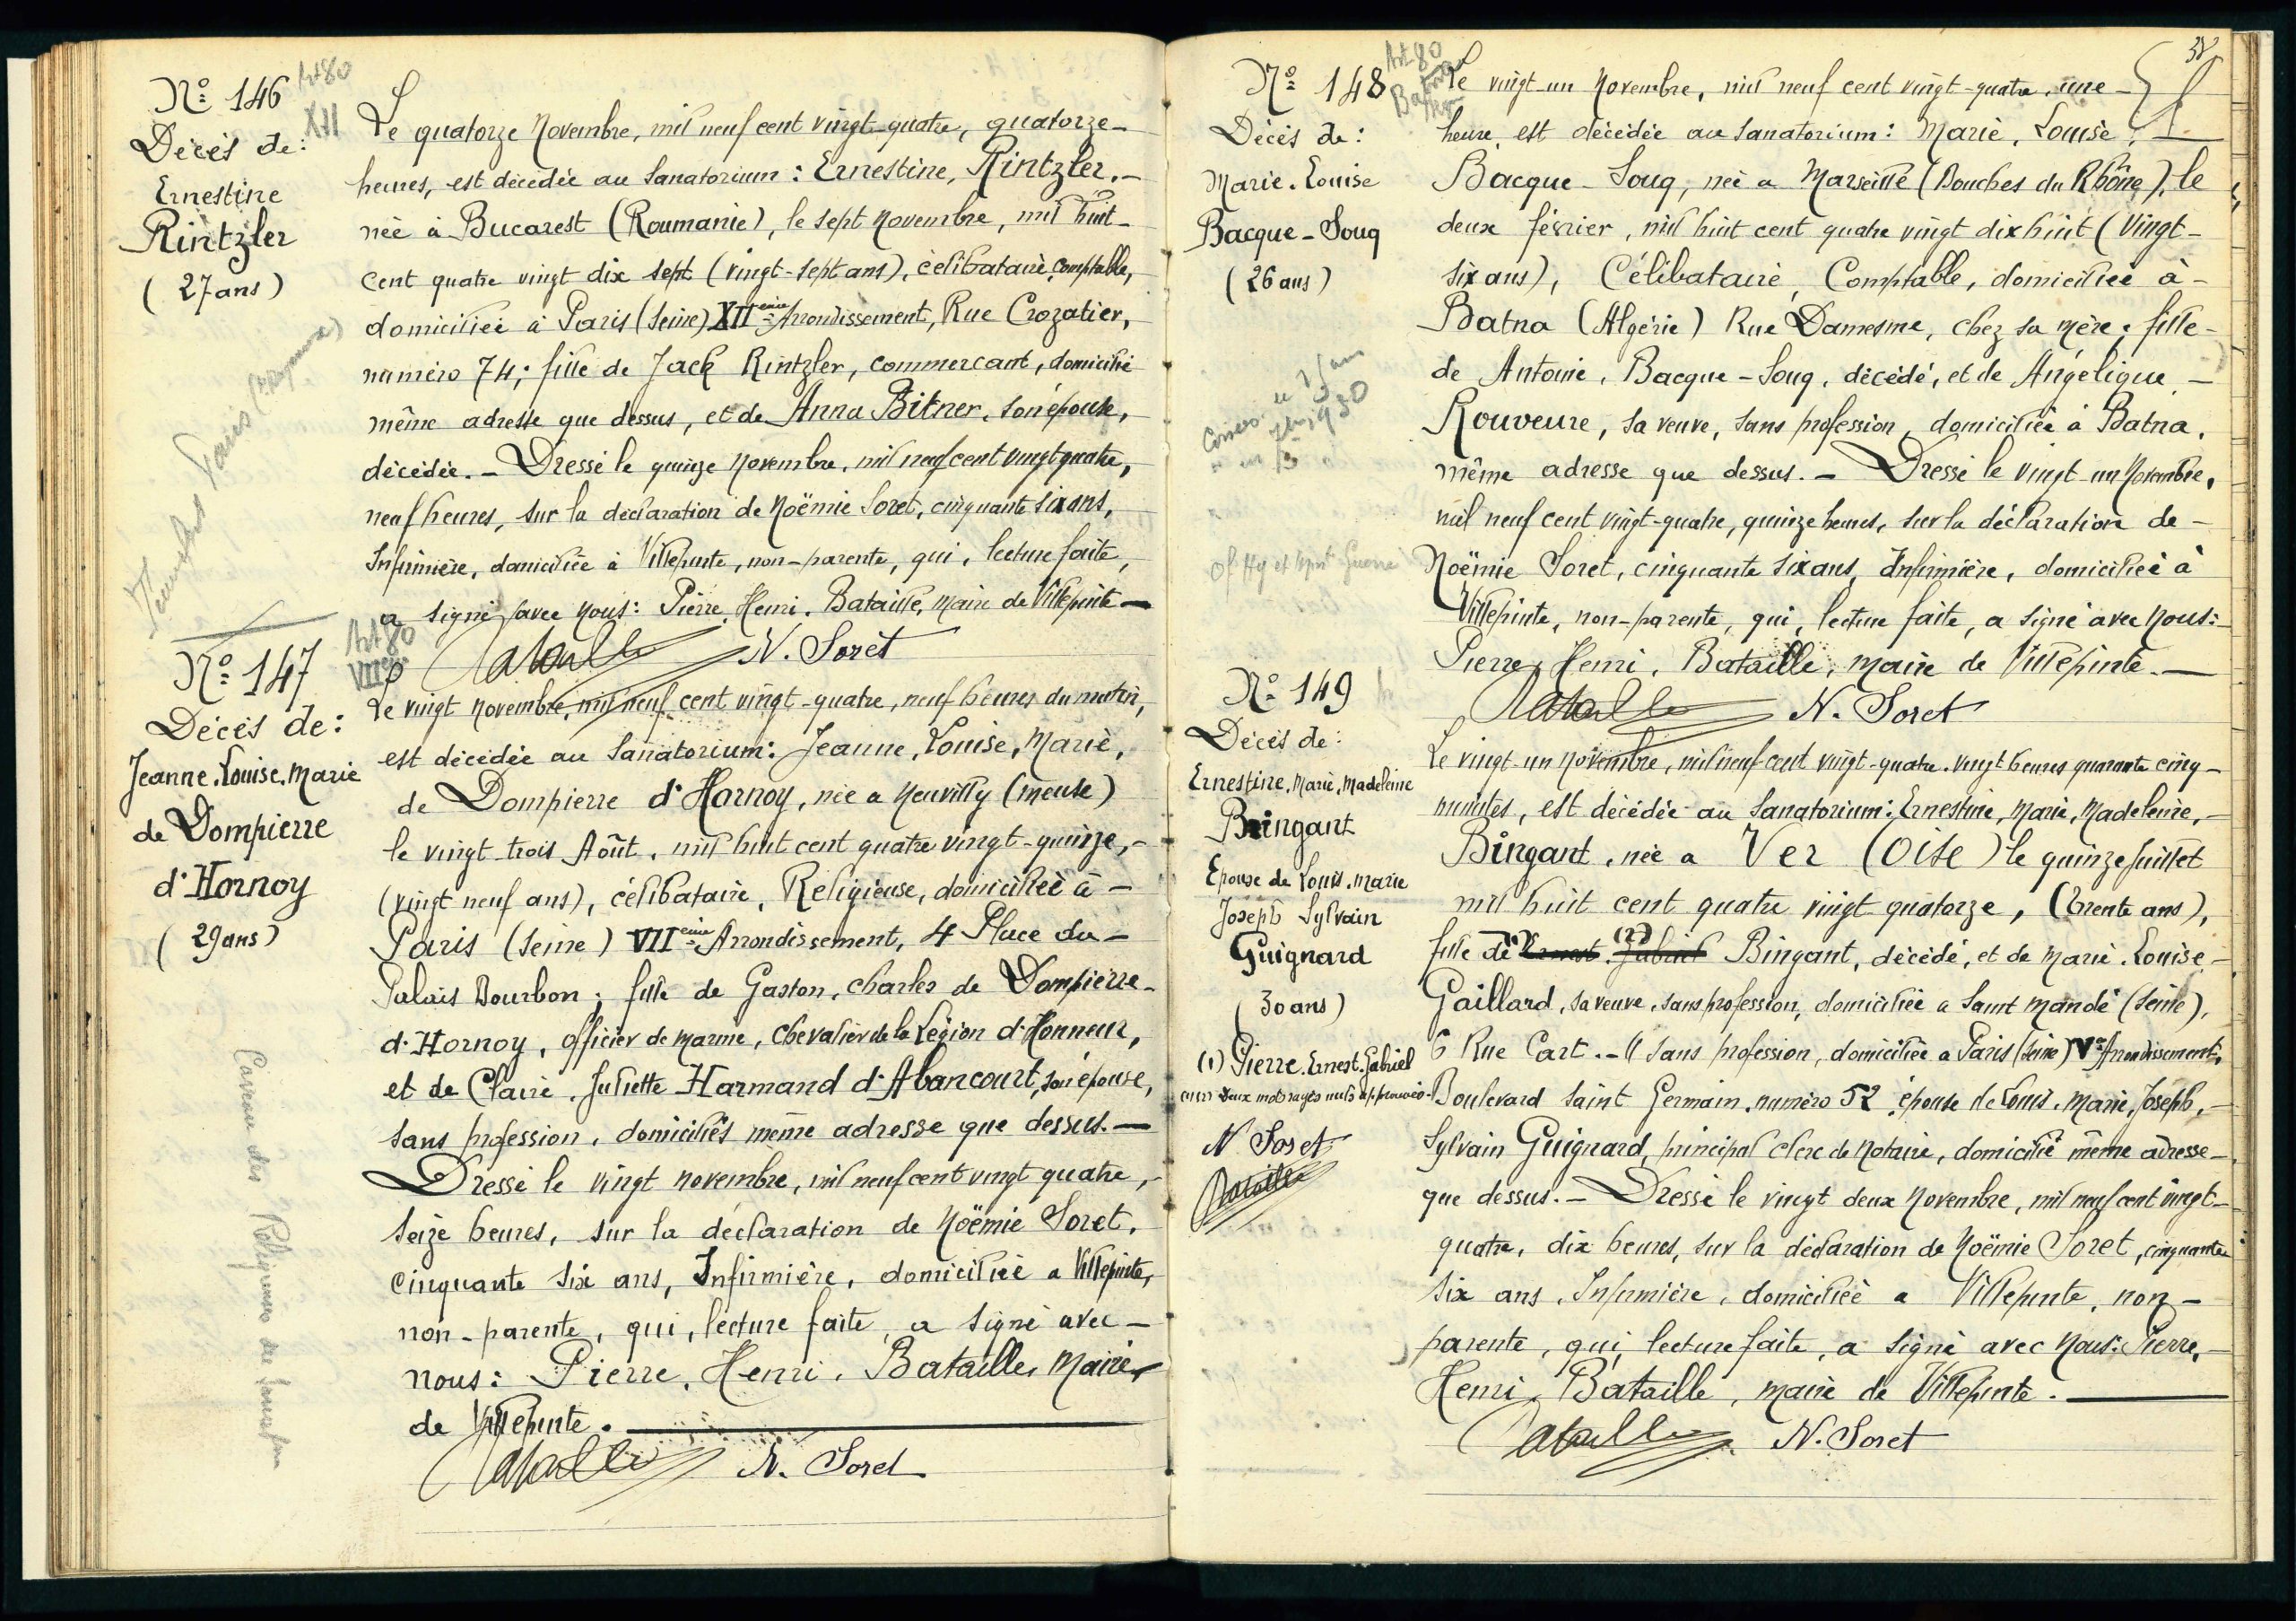 Nº 146
Art 80
XII
Décès de:
Ernestine
Rintzler
(27 ans)
Le quatorze Novembre, mil neuf cent vingt-quatre, quatorze-
heures, est décédée au Sanatorium: Ernestine, Rintzler.-
née à Bucarest (Roumanie), le sept Novembre, mil huit-
cent quatre vingt dix sept (vingt-sept ans), célibataire, comptable,
domiciliée à Paris (Seine) XIIème Arrondissement, Rue Crozatier,
numéro 74; fille de Jack Rintzler, commercant, domicilié
même adresse que dessus, et de Anna Bitner, son épouse,
décédée.- Dressé le quinze Novembre, mil neuf cent vingt quatre,
neuf heures, sur la déclaration de Noëmie Soret, cinquante six ans,
Infirmière, domiciliée à Villepinte, non-parente, qui, lecture faite,
a signé avec Nous: Pierre, Henri, Bataille, Maire de Villepinte-
Bataille N. Soret
Nº 147
Art 80
VIIème
Décès de:
Jeanne, Louise, Marie
de Dompierre
d'Hornoy
(29 ans)
Le vingt Novembre, mil neuf cent vingt-quatre, neuf heures du matin,
est décédée au Sanatorium: Jeanne, Louise, Marie,
de Dompierre d'Hornoy, née a Neuvilly (Meuse)
le vingt-trois Août, mil huit cent quatre vingt-quinze,-
(vingt neuf ans), célibataire, Religieuse, domiciliée à-
Paris (Seine) VIIème Arrondissement, 4 Place du-
Palais Bourbon; fille de Gaston, Charles de Dompierre-
d'Hornoy, Officier de Marine, Chevalier de la Légion d'Honneur,
et de Claire, Juliette Harmand d'Abancourt, son épouse,
sans profession, domiciliés même adresse que dessus.-
Dressé le vingt novembre, mil neuf cent vingt quatre,-
seize heures, sur la déclaration de Noëmie Soret,
cinquante six ans, Infirmière, domiciliée a Villepinte,
non-parente, qui, lecture faite, a signé avec-
nous: Pierre, Henri, Bataille, Maire
de Villepinte.
Bataille N. Soret
Caveau des Religieuses
38
Nº 148
Art 80
Décès de:
Marie, Louise
Bacque-Souq
(26 ans)
Le vingt-un Novembre, mil neuf cent vingt-quatre, une-
heure, est décédée au Sanatorium: Marie, Louise,-
Bacque-Souq, née a Marseille (Bouches du Rhône), le
deux février, mil huit cent quatre vingt dix huit (Vingt-
six ans), Célibataire, Comptable, domiciliée à-
Batna (Algérie) Rue Damesme, chez sa mère; fille-
de Antoine, Bacque-Souq, décédé, et de Angélique-
Rouveure, sa veuve, sans profession, domiciliée à Batna,
même adresse que dessus.- Dressé le vingt-un Novembre,
mil neuf cent vingt-quatre, quinze heures, sur la déclaration de-
Noëmie Soret, cinquante six ans, Infirmière, domiciliée à
Villepinte, non-parente, qui, lecture faite, a signé avec Nous:-
Pierre, Henri, Bataille, Maire de Villepinte.-
Bataille N. Soret
Nº 149
Décès de:
Ernestine, Marie, Madeleine
Bingant
Epouse de Louis, Marie
Joseph Sylvain
Guignard
(30 ans)
(1) Pierre, Ernest, Gabriel
deux mots rayés nuls approuvés
N Soret
Bataille
Le vingt-un Novembre, mil neuf cent vingt-quatre, vingt heures quarante cinq-
minutes, est décédée au Sanatorium: Ernestine, Marie, Madeleine,-
Bingant, née a Ver (Oise) le quinze Juillet
mil huit cent quatre vingt quatorze, (Trente ans),
fille de Ernest, Gabriel Bingant, décédé, et de Marie, Louise-
Gaillard, sa veuve, sans profession, domiciliée a Saint Mandé (Seine),
6 Rue Cart.- sans profession, domiciliée a Paris (Seine) Ve Arrondissement,
Boulevard Saint Germain, numéro 52, épouse de Louis, Marie, Joseph,-
Sylvain Guignard, principal clerc de Notaire, domicilié même adresse-
que dessus.- Dressé le vingt deux Novembre, mil neuf cent vingt-
quatre, dix heures, sur la déclaration de Noëmie Soret, cinquante
six ans, Infirmière, domiciliée a Villepinte, non-
parente, qui, lecture faite, a signé avec Nous: Pierre,-
Henri, Bataille, Maire de Villepinte.
Bataille N. Soret